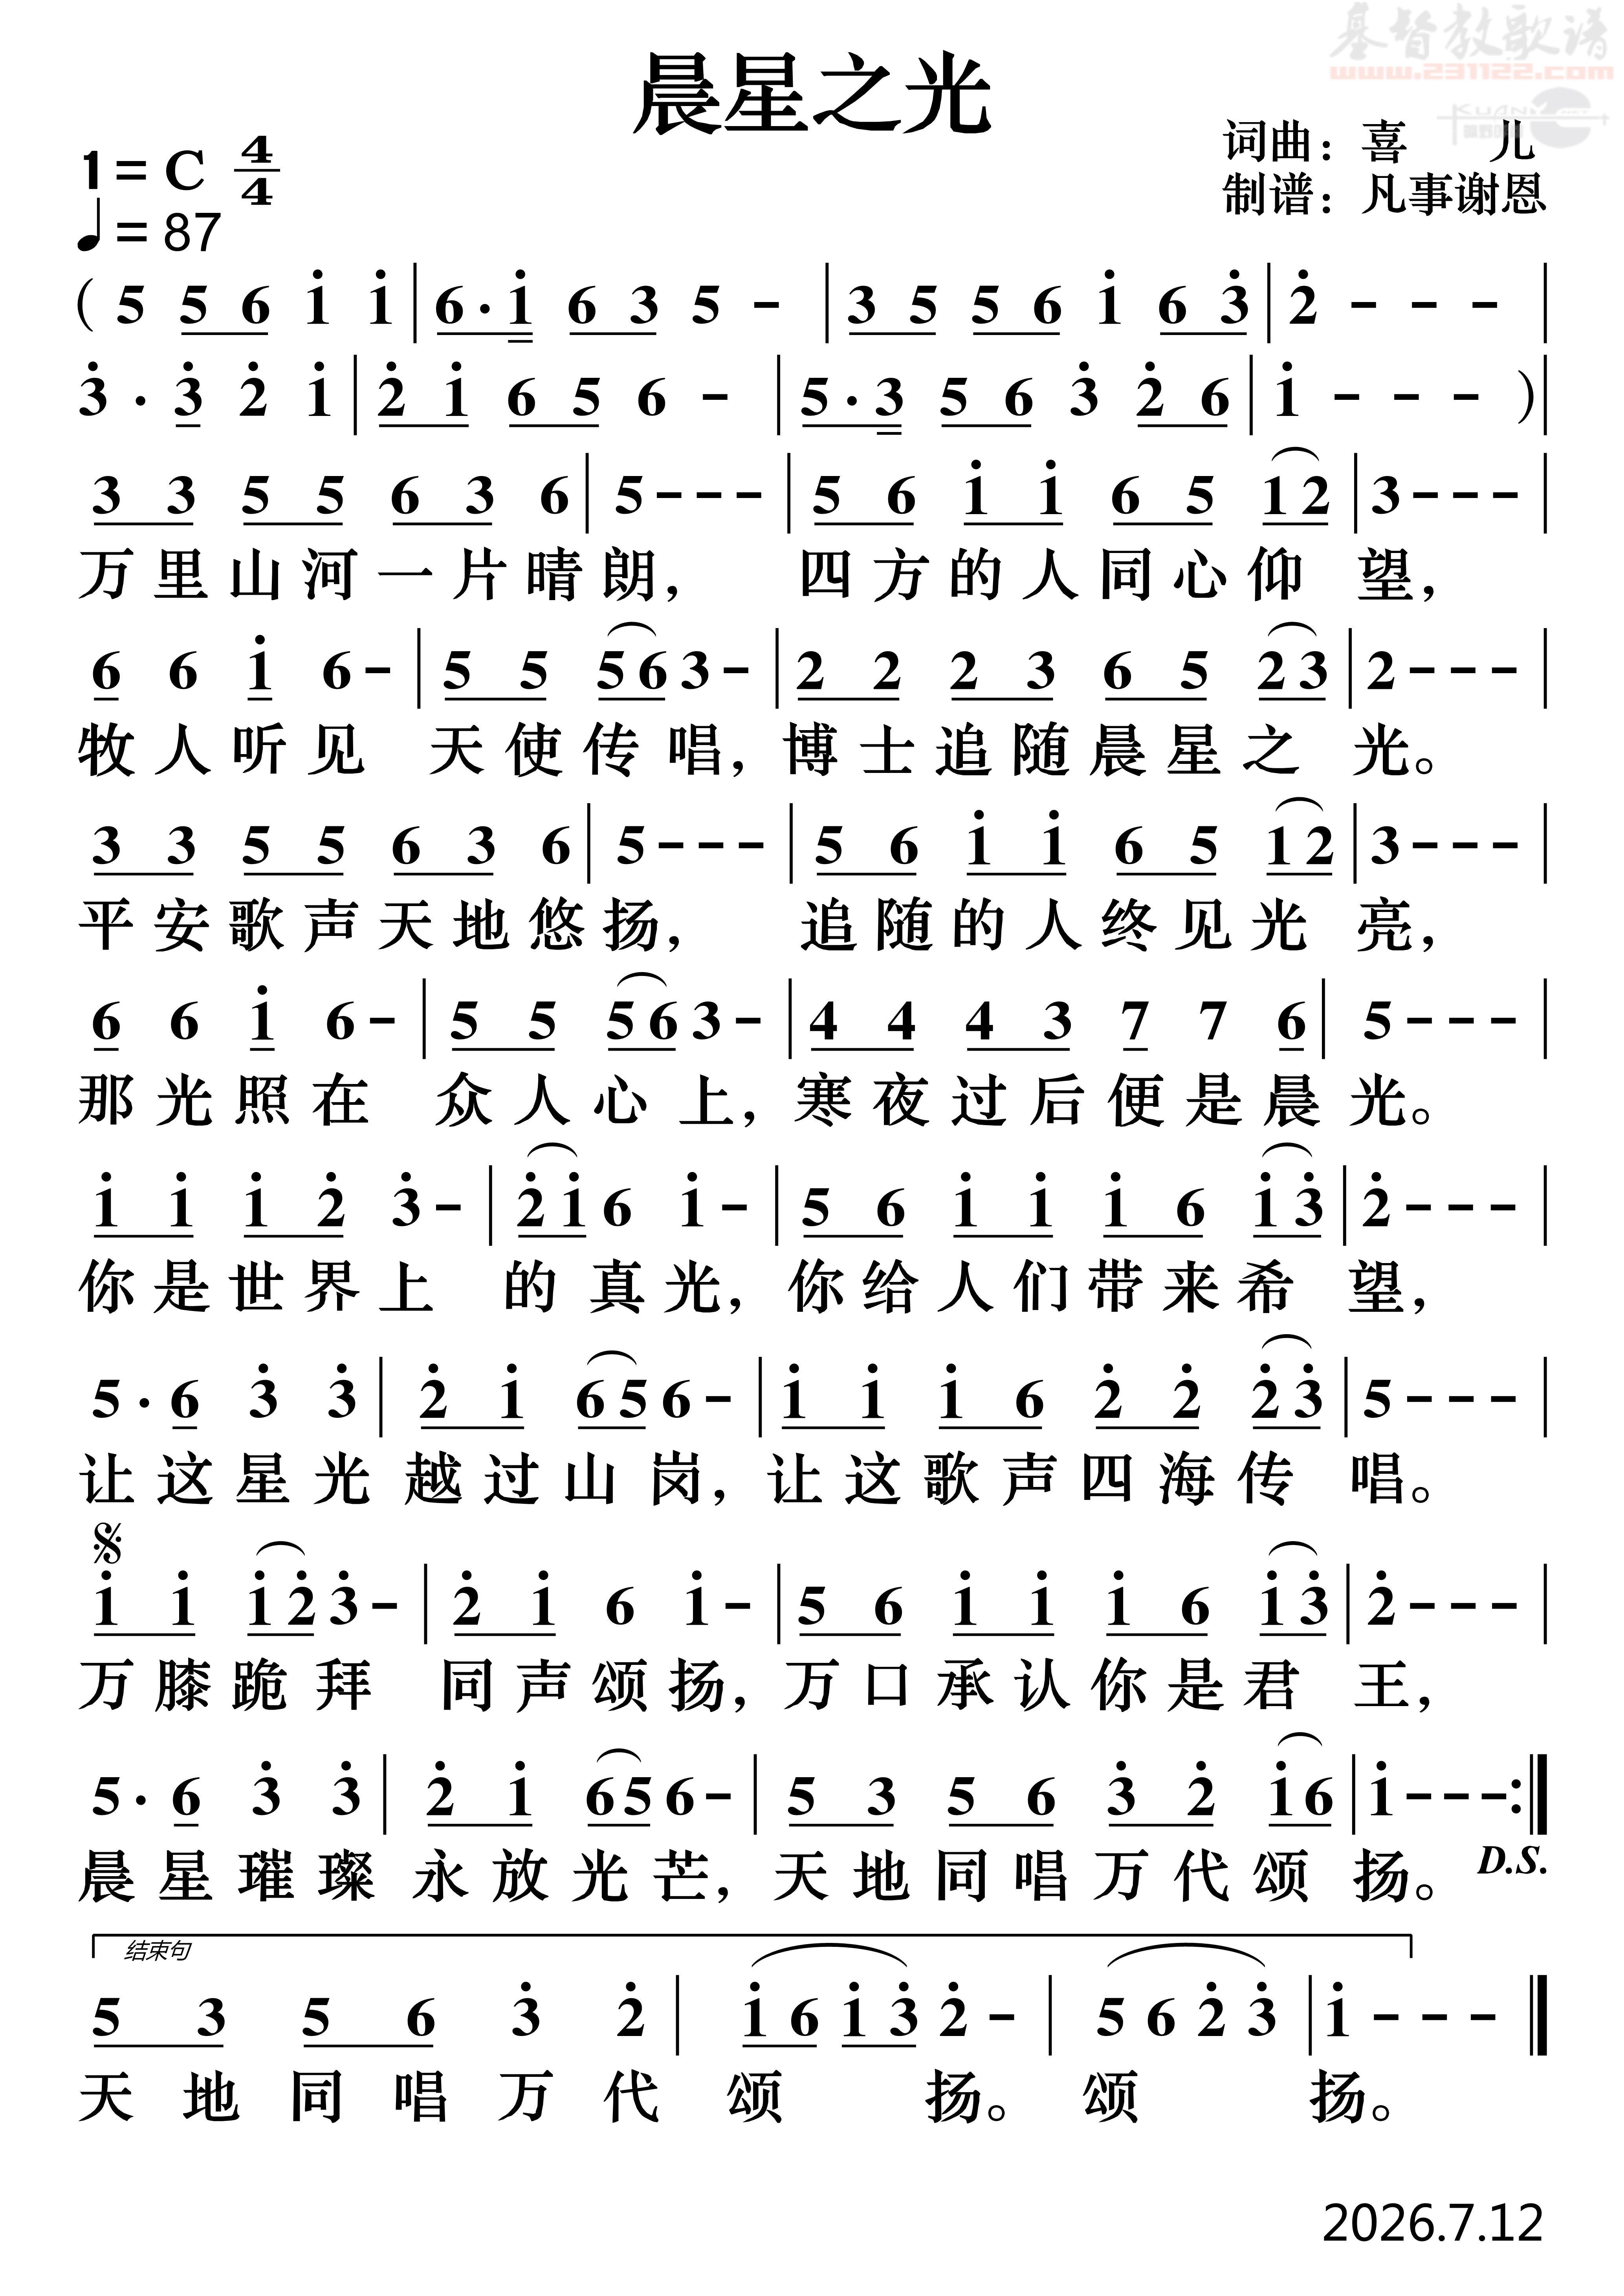 基督教歌谱
www.231122.com
晨星之光
词曲：喜 儿
制谱：凡事谢恩
1=C 4/4
♩=87
( 5 5 6 i i | 6 · i 6 3 5 – | 3 5 5 6 i 6 3̇ | 2̇ – – – |
3̇ · 3̇ 2̇ i | 2̇ i 6 5 6 – | 5 · 3 5 6 3̇ 2̇ 6 | i – – – ) |
3 3 5 5 6 3 6 | 5 – – – | 5 6 i i 6 5 1 2 | 3 – – – |
万里山河一片晴朗， 四方的人同心仰望，
6 6 i 6 – | 5 5 5 6 3 – | 2 2 2 3 6 5 2 3 | 2 – – – |
牧人听见 天使传唱，博士追随晨星之光。
3 3 5 5 6 3 6 | 5 – – – | 5 6 i i 6 5 1 2 | 3 – – – |
平安歌声天地悠扬， 追随的人终见光亮，
6 6 i 6 – | 5 5 5 6 3 – | 4 4 4 3 7 7 6 | 5 – – – |
那光照在 众人心上，寒夜过后便是晨光。
i i i 2̇ 3̇ – | 2̇ i 6 i – | 5 6 i i i 6 i 3̇ | 2̇ – – – |
你是世界上 的真光，你给人们带来希望，
5 · 6 3̇ 3̇ | 2̇ i 6 5 6 – | i i i 6 2̇ 2̇ 2̇ 3̇ | 5 – – – |
让这星光 越过山岗，让这歌声四海传唱。
i i i 2̇ 3̇ – | 2̇ i 6 i – | 5 6 i i i 6 i 3̇ | 2̇ – – – |
万膝跪拜 同声颂扬，万口承认你是君王，
5 · 6 3̇ 3̇ | 2̇ i 6 5 6 – | 5 3 5 6 3̇ 2̇ i 6 | i – – – :|
晨星璀璨 永放光芒，天地同唱万代颂扬。 D.S.
结束句
5 3 5 6 3̇ 2̇ | i 6 i 3̇ 2̇ – | 5 6 2̇ 3̇ | i – – – |
天地同唱万代 颂 扬。颂 扬。
2026.7.12